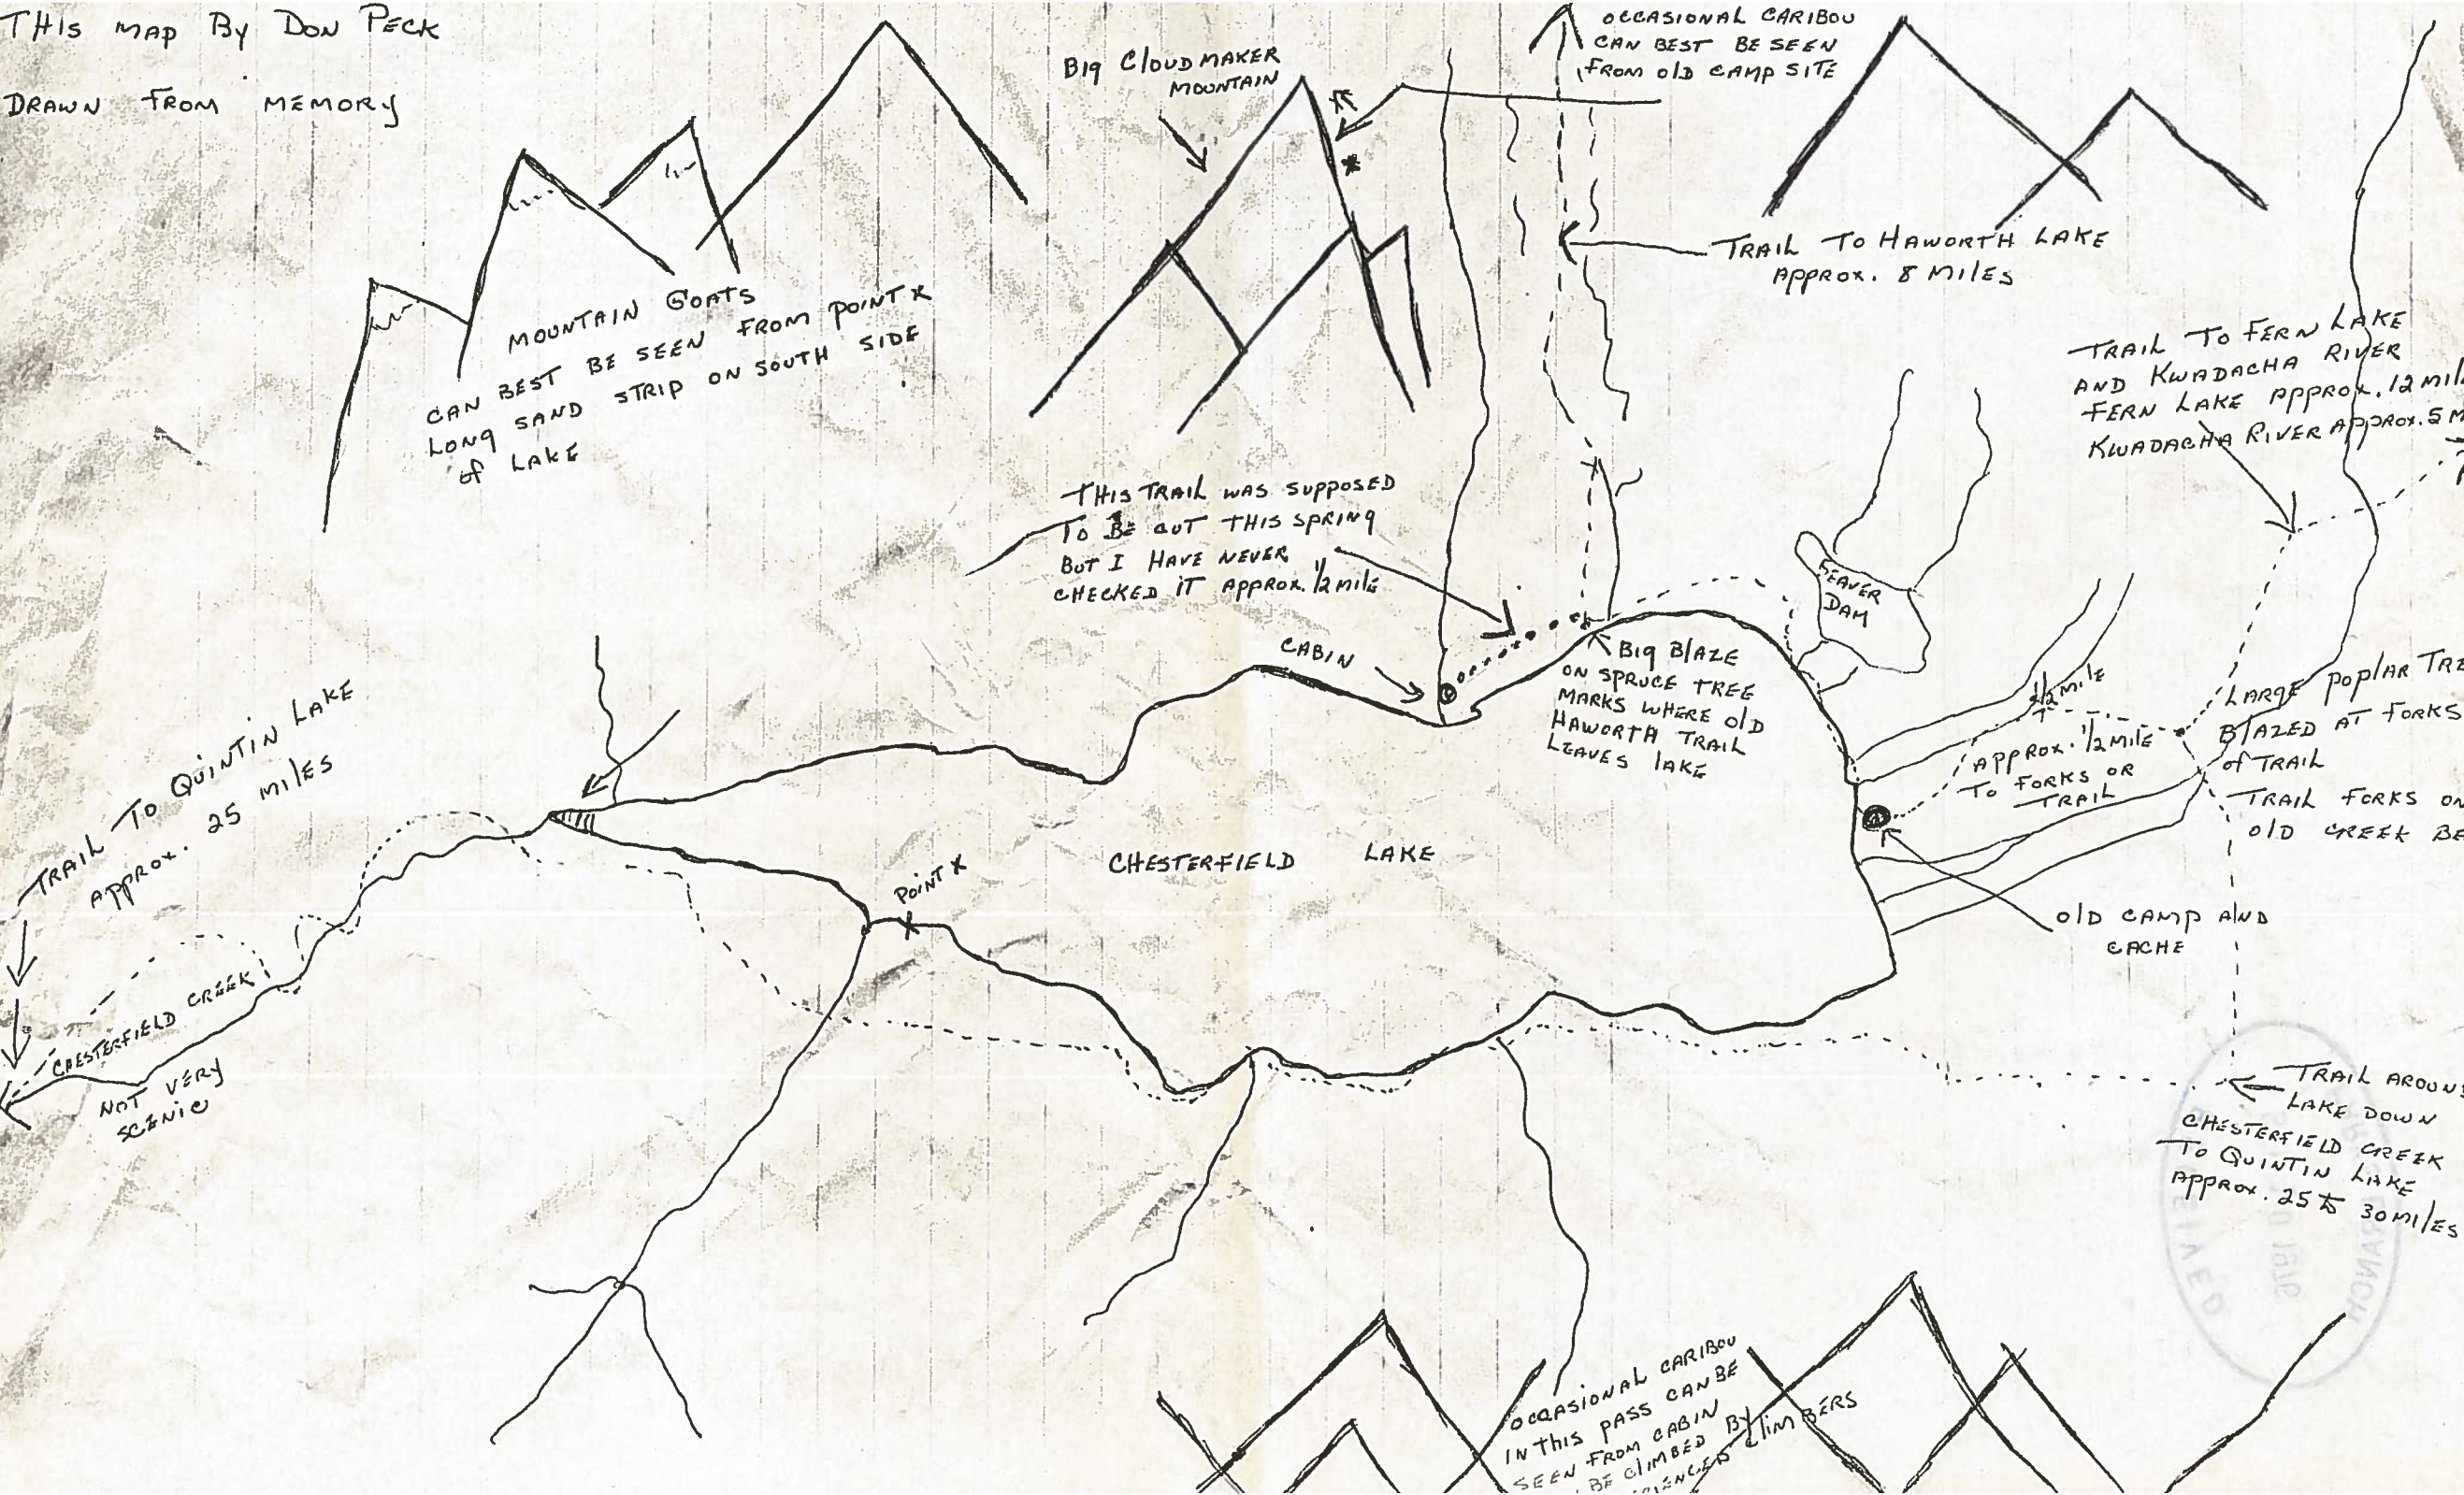 THIS MAP BY DON PECK
DRAWN FROM MEMORY
BIG CLOUDMAKER
MOUNTAIN
OCCASIONAL CARIBOU
CAN BEST BE SEEN
FROM OLD CAMP SITE
TRAIL TO HAWORTH LAKE
APPROX. 8 MILES
MOUNTAIN GOATS
CAN BEST BE SEEN FROM POINT X
LONG SAND STRIP ON SOUTH SIDE
OF LAKE
TRAIL TO FERN LAKE
AND KWADACHA RIVER
FERN LAKE APPROX. 12 MIL
KWADACHA RIVER APPROX. 5 M
THIS TRAIL WAS SUPPOSED
TO BE CUT THIS SPRING
BUT I HAVE NEVER
CHECKED IT APPROX. 1/2 MILE
BEAVER
DAM
CABIN
BIG BLAZE
ON SPRUCE TREE
MARKS WHERE OLD
HAWORTH TRAIL
LEAVES LAKE
1/2 MILE
APPROX. 1/2 MILE
TO FORKS OR
TRAIL
LARGE POPLAR TRE
BLAZED AT FORKS
OF TRAIL
TRAIL FORKS ON
OLD CREEK BE
TRAIL TO QUINTIN LAKE
APPROX. 25 MILES
CHESTERFIELD LAKE
POINT X
X
OLD CAMP AND
CACHE
CHESTERFIELD CREEK
NOT VERY
SCENIC
TRAIL AROUND
LAKE DOWN
CHESTERFIELD CREEK
TO QUINTIN LAKE
APPROX. 25 TO 30 MILES
OCCASIONAL CARIBOU
IN THIS PASS CAN BE
SEEN FROM CABIN
BE CLIMBED BY
RIENCED CLIMBERS
BRANCH